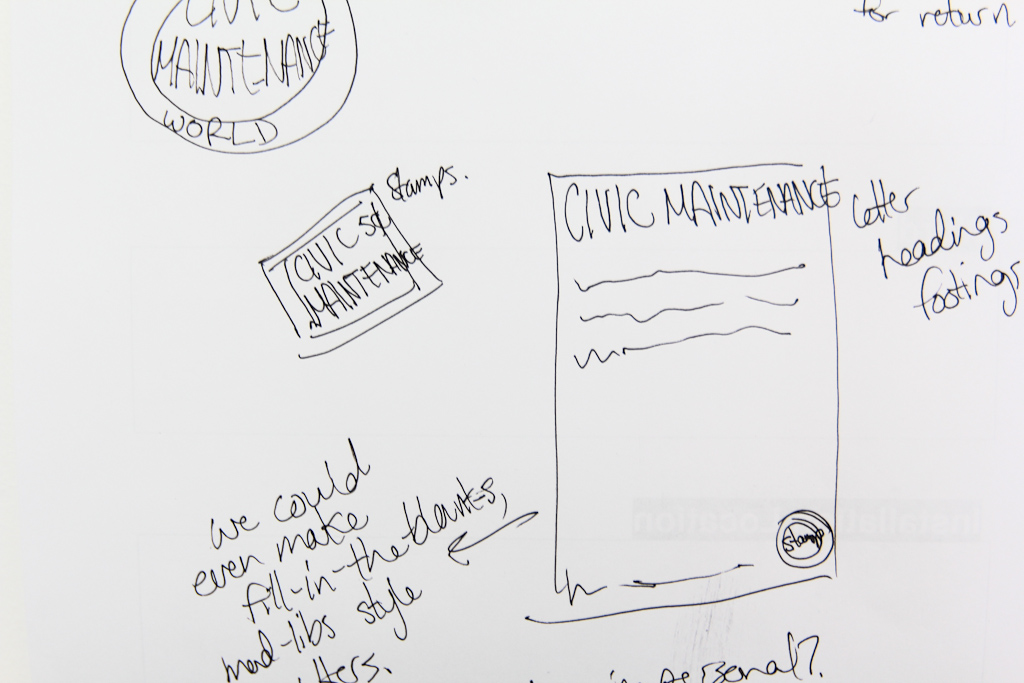 CIVIC
MAINTENANCE
WORLD
for return
stamps.
CIVIC 5¢
MAINTENANCE
CIVIC MAINTENANCE
letter
headings
footings
we could
even make
fill-in-the blankes,
mad-libs style
stamps
personal?